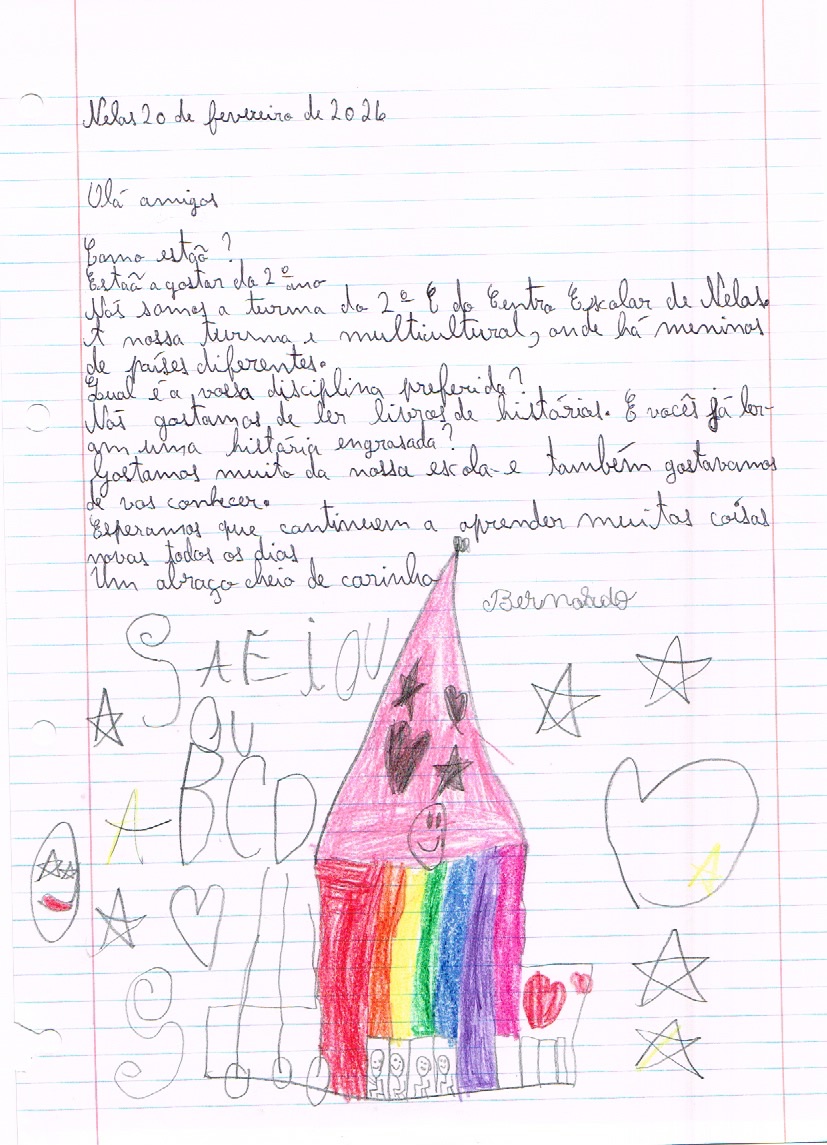 Nelas 20 de fevereiro de 2026
Olá amigos
Como estão ?
Estão a gostar do 2º ano
Nós somos a turma do 2º E do Centro Escolar de Nelas.
A nossa turma e multicultural, onde há meninos
de países diferentes.
Qual é a vossa disciplina preferida?
Nós gostamos de ler livros de histórias. E vocês já ler-
am uma história engrasada?
Gostamos muito da nossa escola e também gostavamos
de vos conhecer.
Esperamos que continuem a aprender muitas coisas
novas todos os dias
Um abraço cheio de carinho
Bernardo
S A E i O U
OU
A B C D
S